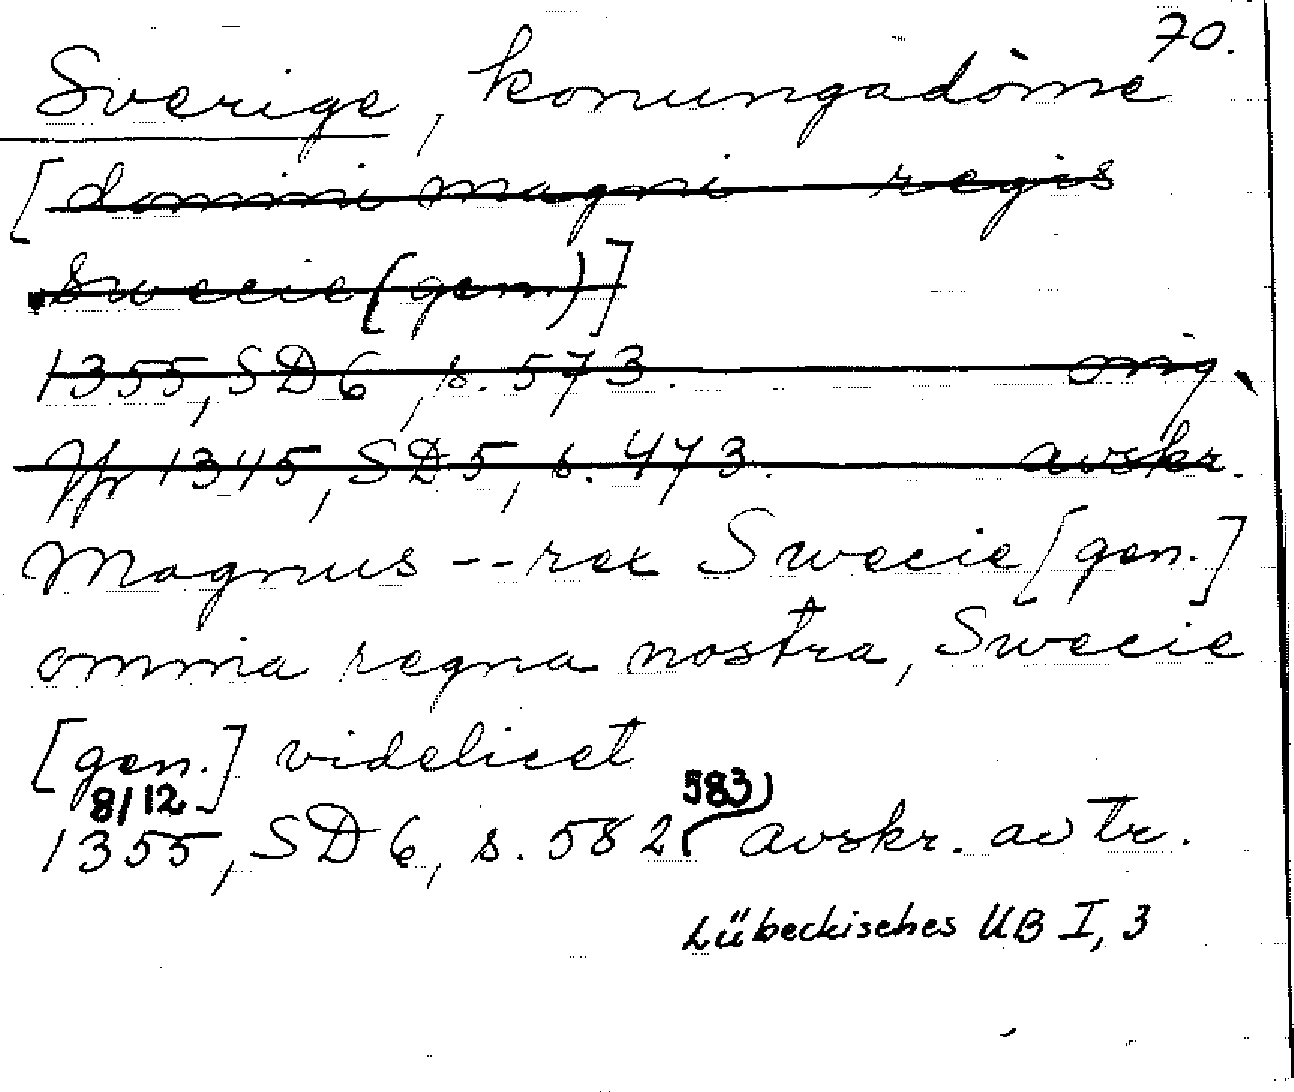 70.
Sverige, konungadöme
[domini magni regis
Swecie (gen.)]
1355, SD 6, s. 573. orig.
Jfr 1345, SD 5, s. 473. avskr.
Magnus -- rex Swecie [gen.]
omnia regna nostra, Swecie
[gen.] videlicet
8/12
583)
1355, SD 6, s. 582 avskr. av tr.
Lübeckisches UB I, 3